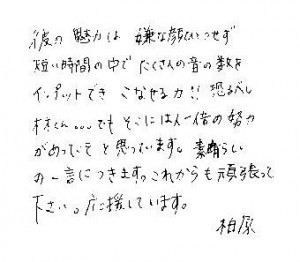 彼の魅力は 嫌な顔ひとつせず
短い時間の中で たくさんの音の数を
インプットでき こなせる力!! 恐るべし
林くん。。。でも そこには人一倍の努力
があってこそと思っています。素晴らしい
の一言につきます。これからも頑張って
下さい。応援しています。
柏原